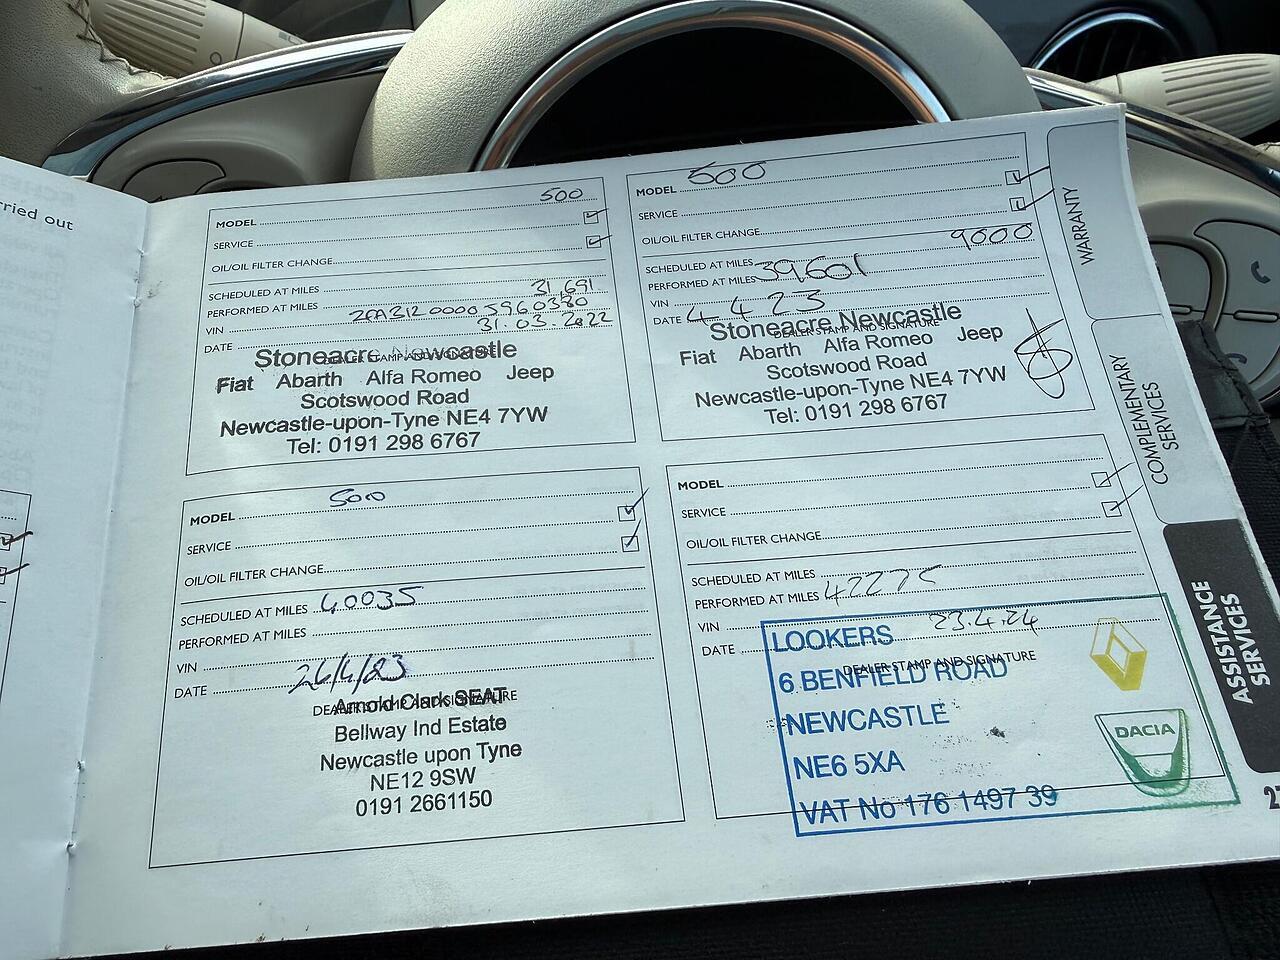 rried out
MODEL 500
SERVICE
OIL/OIL FILTER CHANGE
SCHEDULED AT MILES
PERFORMED AT MILES 31,691
VIN ZFA312 0000 5960380
DATE 31.03.2022
DEALER STAMP AND SIGNATURE
Stoneacre Newcastle
Fiat Abarth Alfa Romeo Jeep
Scotswood Road
Newcastle-upon-Tyne NE4 7YW
Tel: 0191 298 6767
MODEL 500
SERVICE
OIL/OIL FILTER CHANGE
SCHEDULED AT MILES 9000
PERFORMED AT MILES 39,601
VIN
DATE 4 4 23
DEALER STAMP AND SIGNATURE
Stoneacre Newcastle
Fiat Abarth Alfa Romeo Jeep
Scotswood Road
Newcastle-upon-Tyne NE4 7YW
Tel: 0191 298 6767
MODEL 500
SERVICE
OIL/OIL FILTER CHANGE
SCHEDULED AT MILES 40035
PERFORMED AT MILES
VIN
DATE 26/4/23
DEALER STAMP AND SIGNATURE
Arnold Clark SEAT
Bellway Ind Estate
Newcastle upon Tyne
NE12 9SW
0191 2661150
MODEL
SERVICE
OIL/OIL FILTER CHANGE
SCHEDULED AT MILES
PERFORMED AT MILES
VIN
DATE 23.4.24
DEALER STAMP AND SIGNATURE
LOOKERS
6 BENFIELD ROAD
NEWCASTLE
NE6 5XA
VAT No 176 1497 39
DACIA
WARRANTY
COMPLEMENTARY
SERVICES
ASSISTANCE
SERVICES